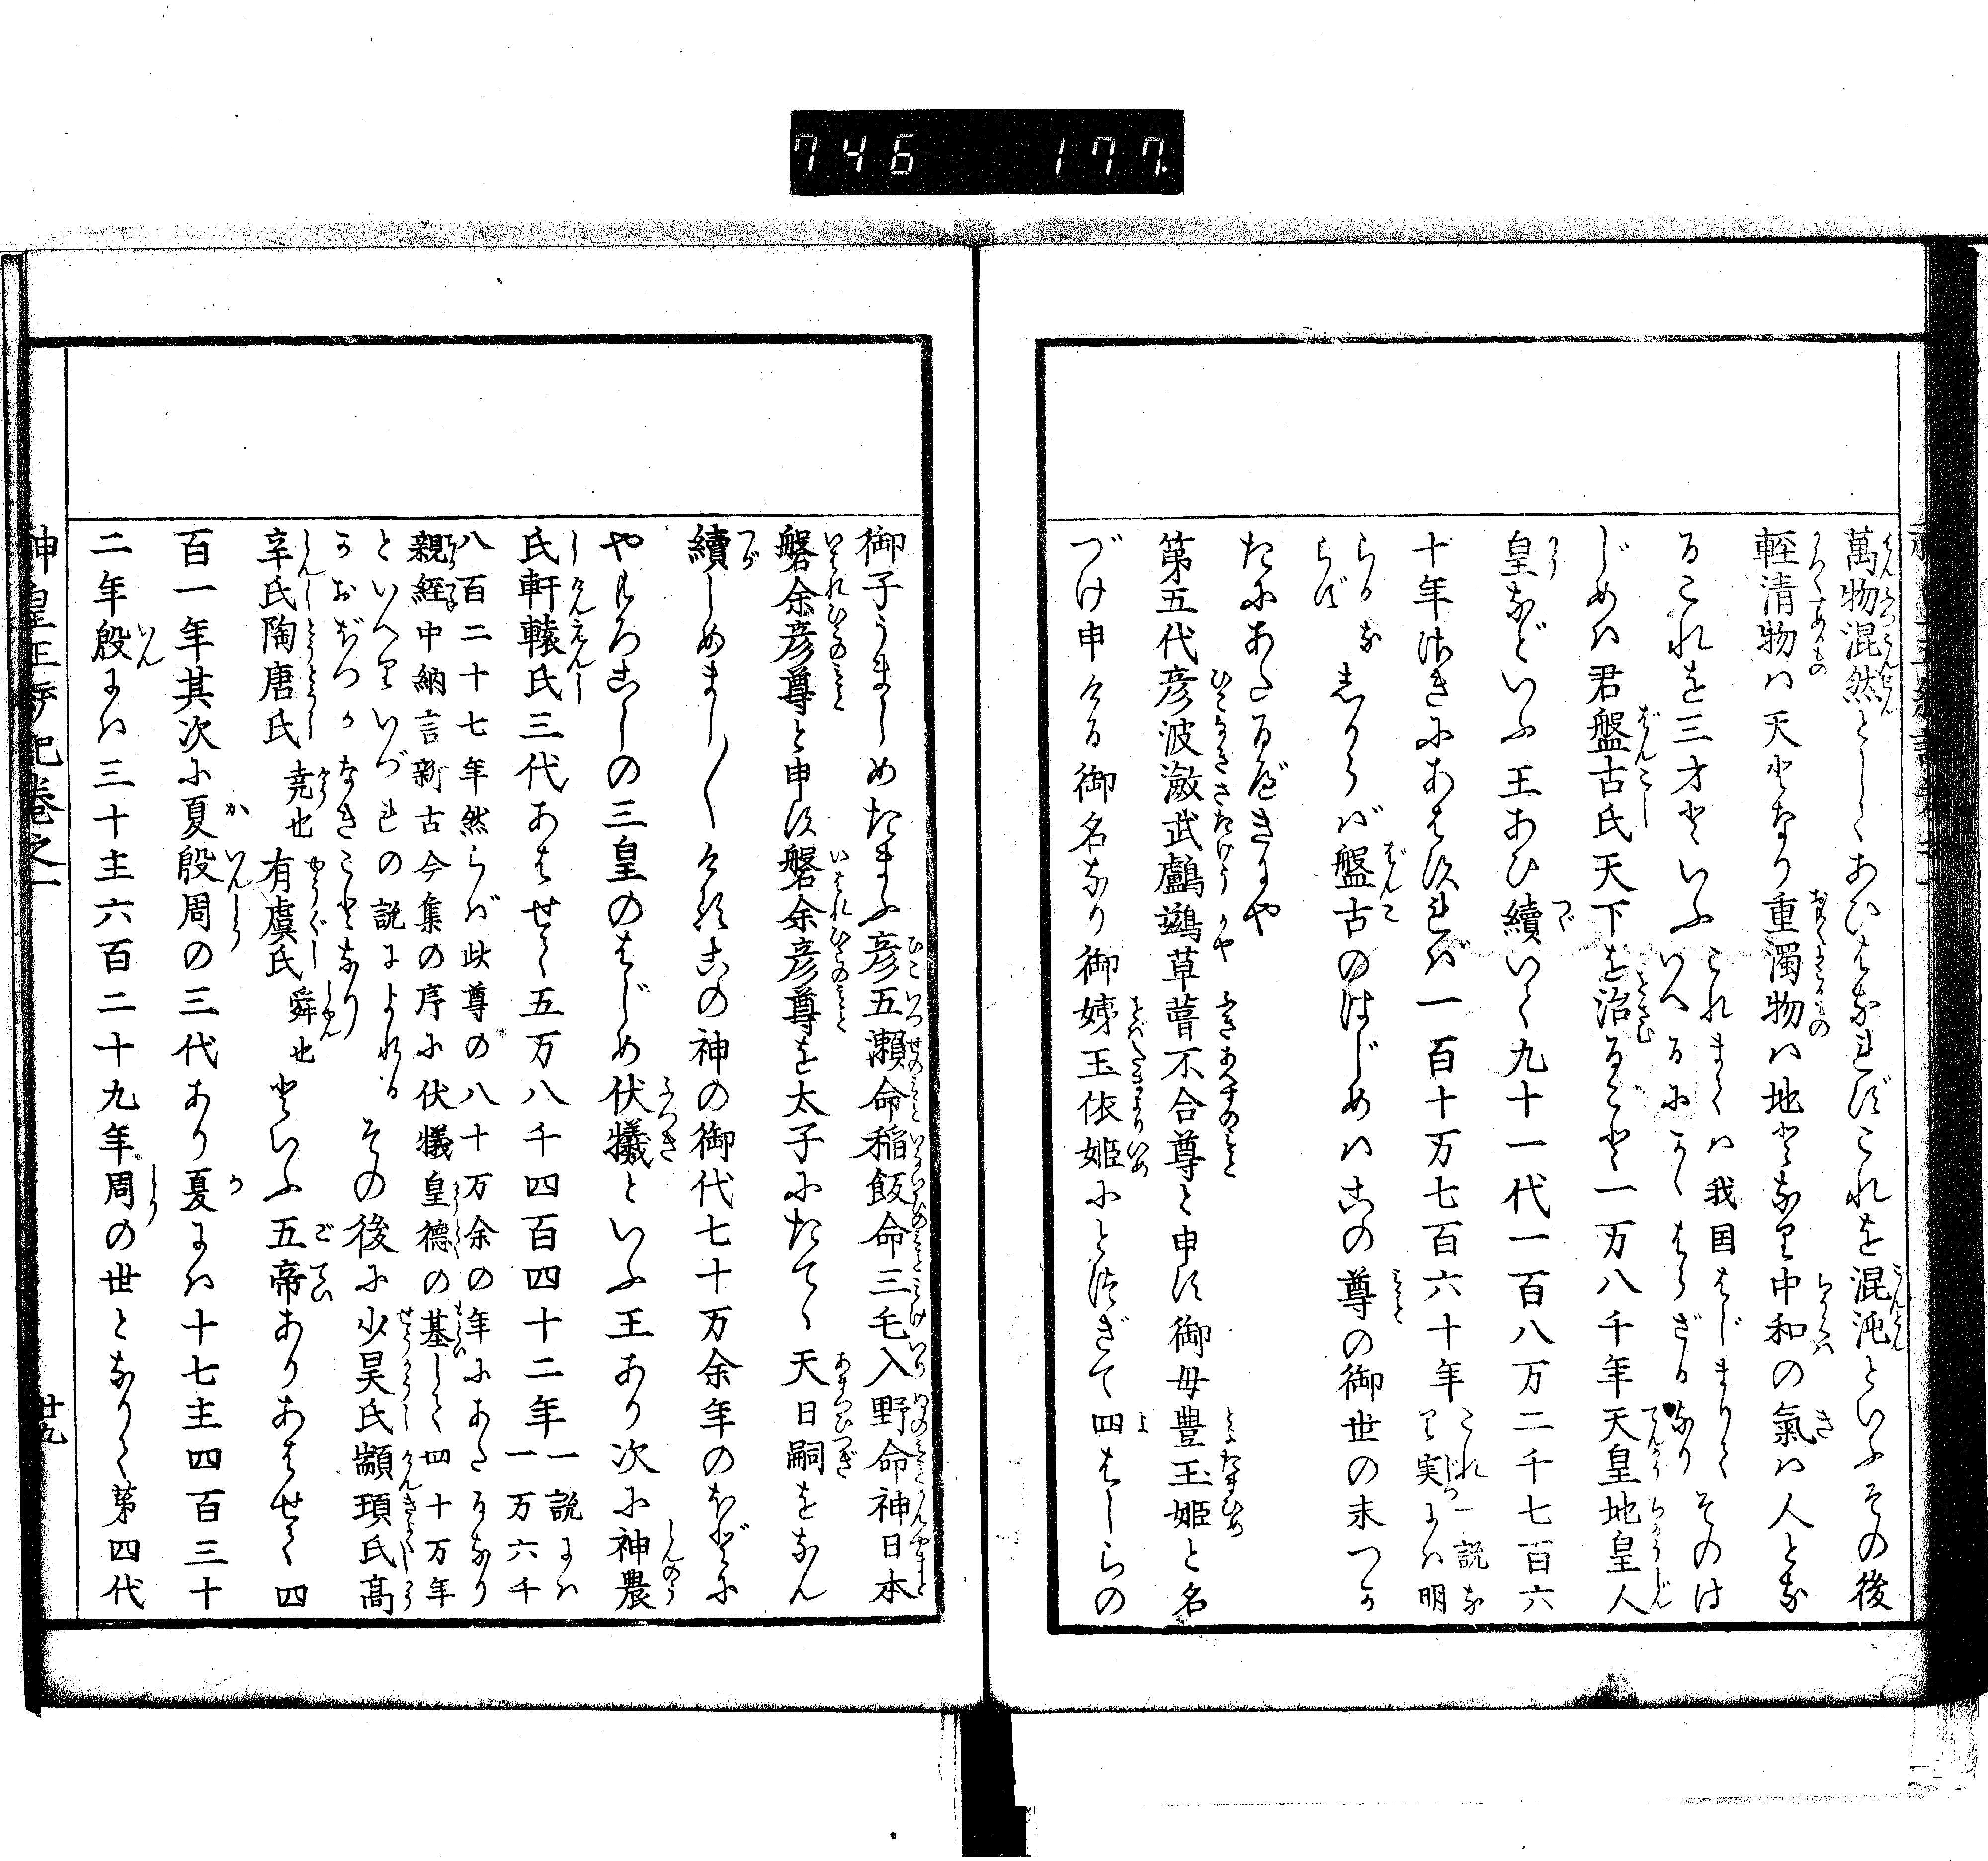 746 177.
萬物混然としてあひはなれずこれを混沌といふその後
軽清物は天となり重濁物は地となり中和の氣は人とな
るこれを三才といふ これまては我国はじまりていへるにかはらざるなり そのは
じめは君盤古氏天下を治ること一万八千年天皇地皇人
皇などいふ王あひ續いて九十一代一百八万二千七百六
十年さきにあはすれは一百十万七百六十年 これ一説なり実には明
らかならず しからば盤古のはじめはこの尊の御世の末つか
たにあたるべきにや
第五代彦波瀲武鸕鷀草葺不合尊と申す御母豊玉姫と名
づけ申ける御名なり御姨玉依姫にとつぎて四はしらの
御子うましめたまふ彦五瀬命稲飯命三毛入野命神日本
磐余彦尊と申す磐余彦尊を太子にたてゝ天日嗣をなん
續しめまし〱けるこの神の御代七十万余年のほどに
やもろこしの三皇のはじめ伏犠といふ王あり次に神農
氏軒轅氏三代あはせて五万八千四百四十二年 一説には一万六千
八百二十七年然らば此尊の八十万余の年にあたるなり
親経中納言新古今集の序に伏犠皇德の基して四十万年
といへりいづれの説によれる
かおぼつかなきことなり その後に少昊氏顓頊氏高
辛氏陶唐氏 尭也 有虞氏 舜也 といふ五帝ありあはせて四
百一年其次に夏殷周の三代あり夏には十七主四百三十
二年殷には三十主六百二十九年周の世となりて第四代
神皇正統記巻之一
廿九